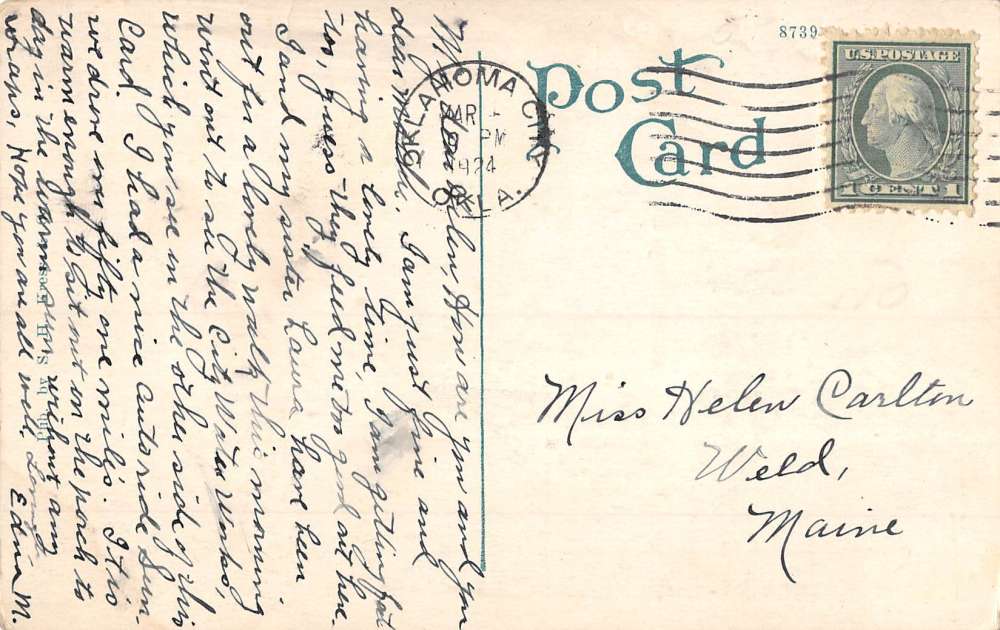 8739
Post
Card
U.S. POSTAGE
1 CENT 1
OKLAHOMA CITY
OKLA.
MAR
PM
1924
Miss Helen Carlton
Weld,
Maine
My Dear Helen, How are you and your
dear Mother. I am just fine and
having a lovely time, I am getting fat
too, guess they feed me too good out here.
I and my sister Laura have been
out for a lovely walk this morning
went out to see the City Water Works,
which you see in the other side of this
Card. I had a nice auto ride Sun-
we drove over fifty one miles. It is
warm enough to sit out on the porch to
day in the warm sun without any
wraps, Hope you are all well. Lovingly
Edna M.
Pub. by S. H.